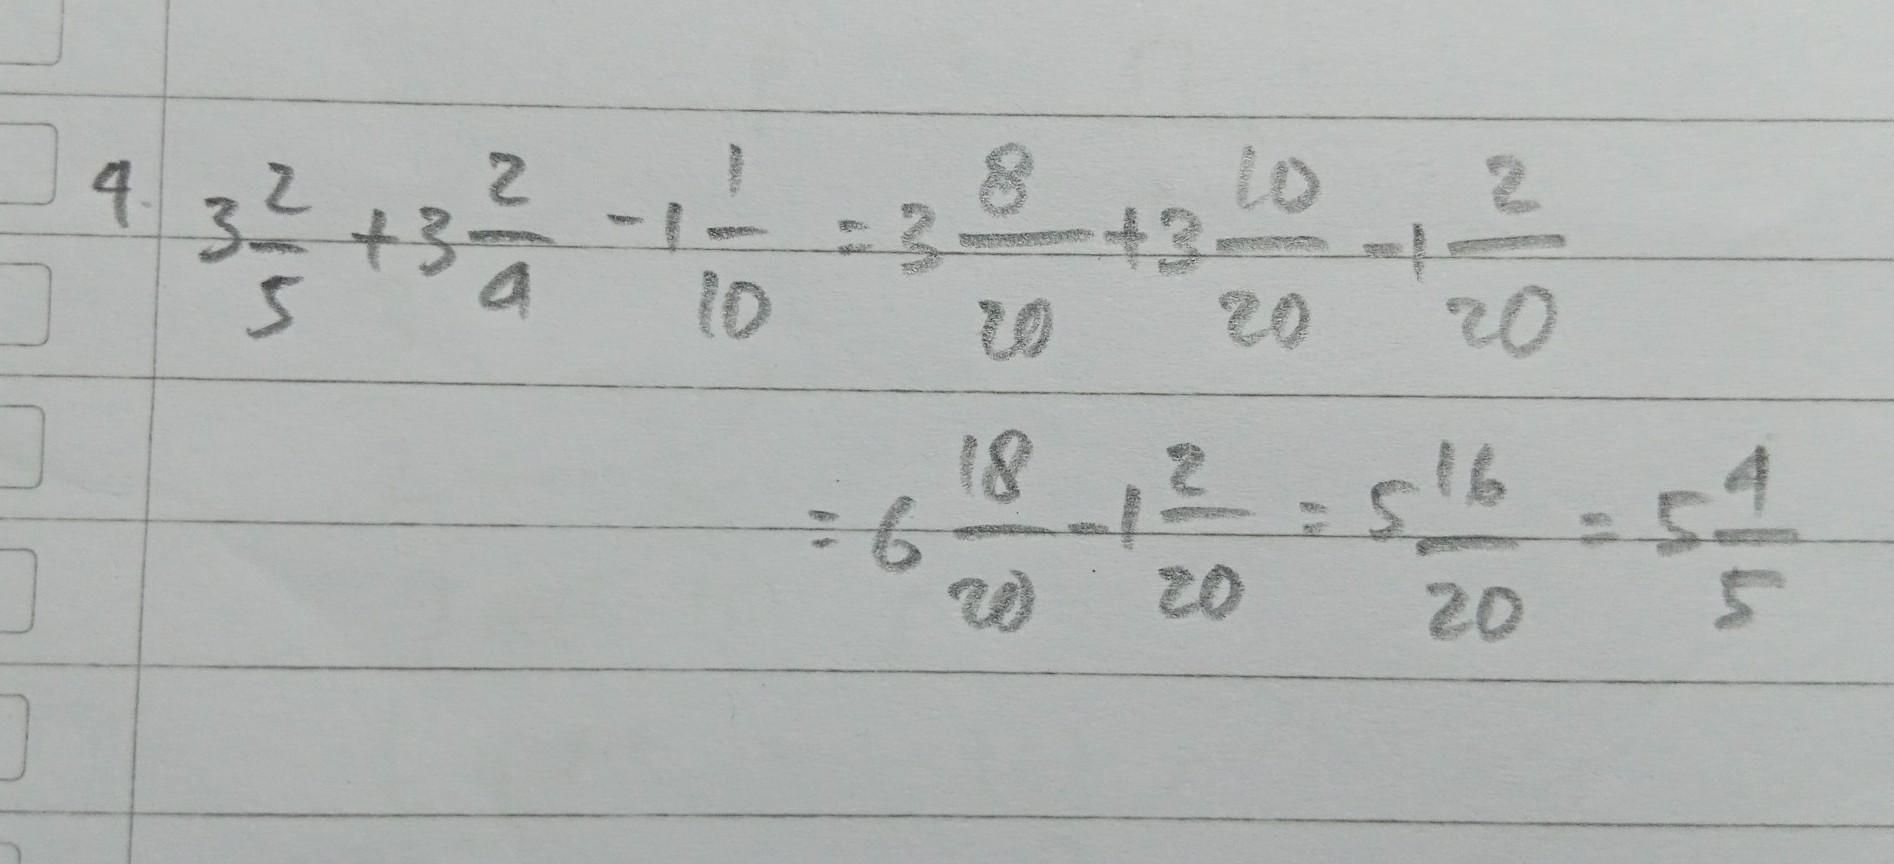 4. 3 2/5 + 3 2/4 - 1 1/10 = 3 8/20 + 3 10/20 - 1 2/20
= 6 18/20 - 1 2/20 = 5 16/20 = 5 4/5